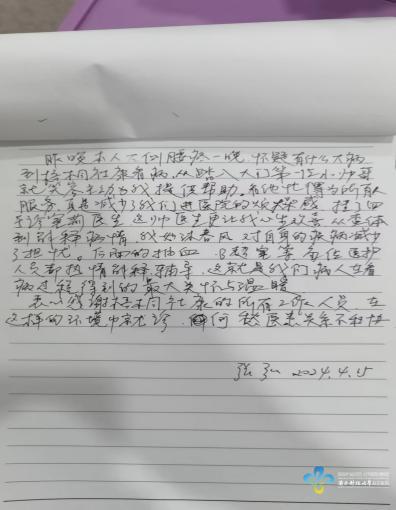 昨晚本人右侧腰疼一晚,怀疑有什么大病
到梧桐社康看病,从踏入大门第一位小帅哥
就笑容主动为我提供帮助,
服务,真是减少了我们进医院的 挂了四
号诊室 医生,这帅医生更让我心生欢喜,从查体
到解释病情,我如沐春风,对自身的疾病减少
了担忧。后面的抽血、B超室等各位医护
人员都热情解释辅导,这就是我们病人在看
病过程得到的最大关怀与温暖
表心感谢梧桐社康的所有工作人员,在
这样的环境中就诊,何愁医患关系不和谐
张 2024.4.15